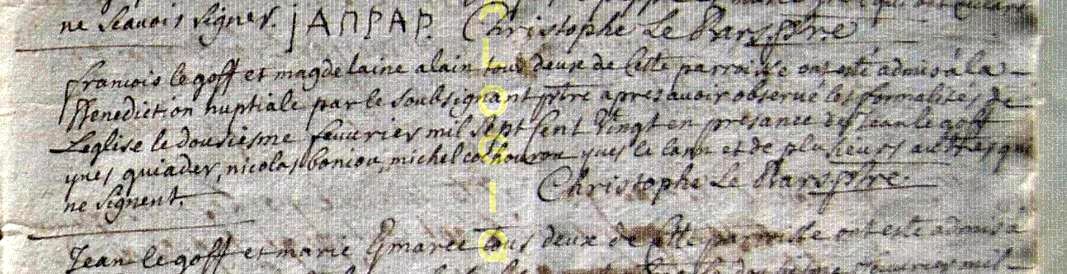 ne scavois signer. jANPAP. Christophe Le Bars ptre
francois le goff et magdelaine alain tous deux de cette parroisse ont esté admis a la
Benediction nuptiale par le soubsignant ptre apres avoir observé les formalités de
Leglise le dousiesme feuvrier mil sept sent vingt en presance de jean le goff
yves quiader, nicolas boniou, michel colhourou yves le lann et de plusieurs autres qui
ne signent. Christophe Le Bars ptre.
Jean le goff et marie tous deux de cette parroisse ont esté admis a